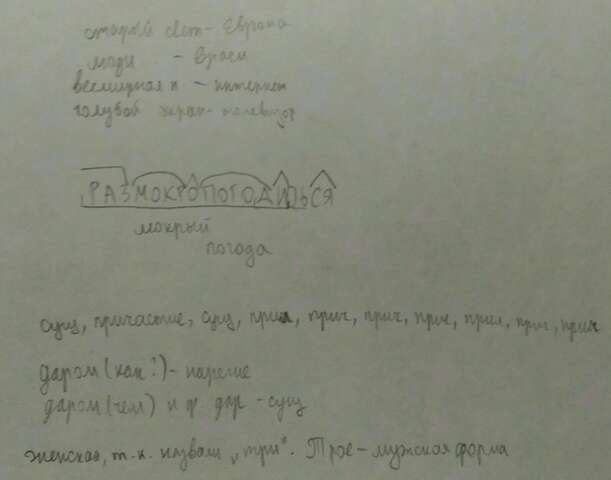 старый свет - Европа
люди - врачи
всемирная п. - интернет
голубой экран - телевизор
РАЗМОКРОПОГОДИТЬСЯ
мокрый
погода
сущ, причастие, сущ, прил, прич, прич, прич, прил, прич, прич
даром (как?) - наречие
даром (чем) н ф дар - сущ
женская, т.к. назвали „три". Трое - мужская форма